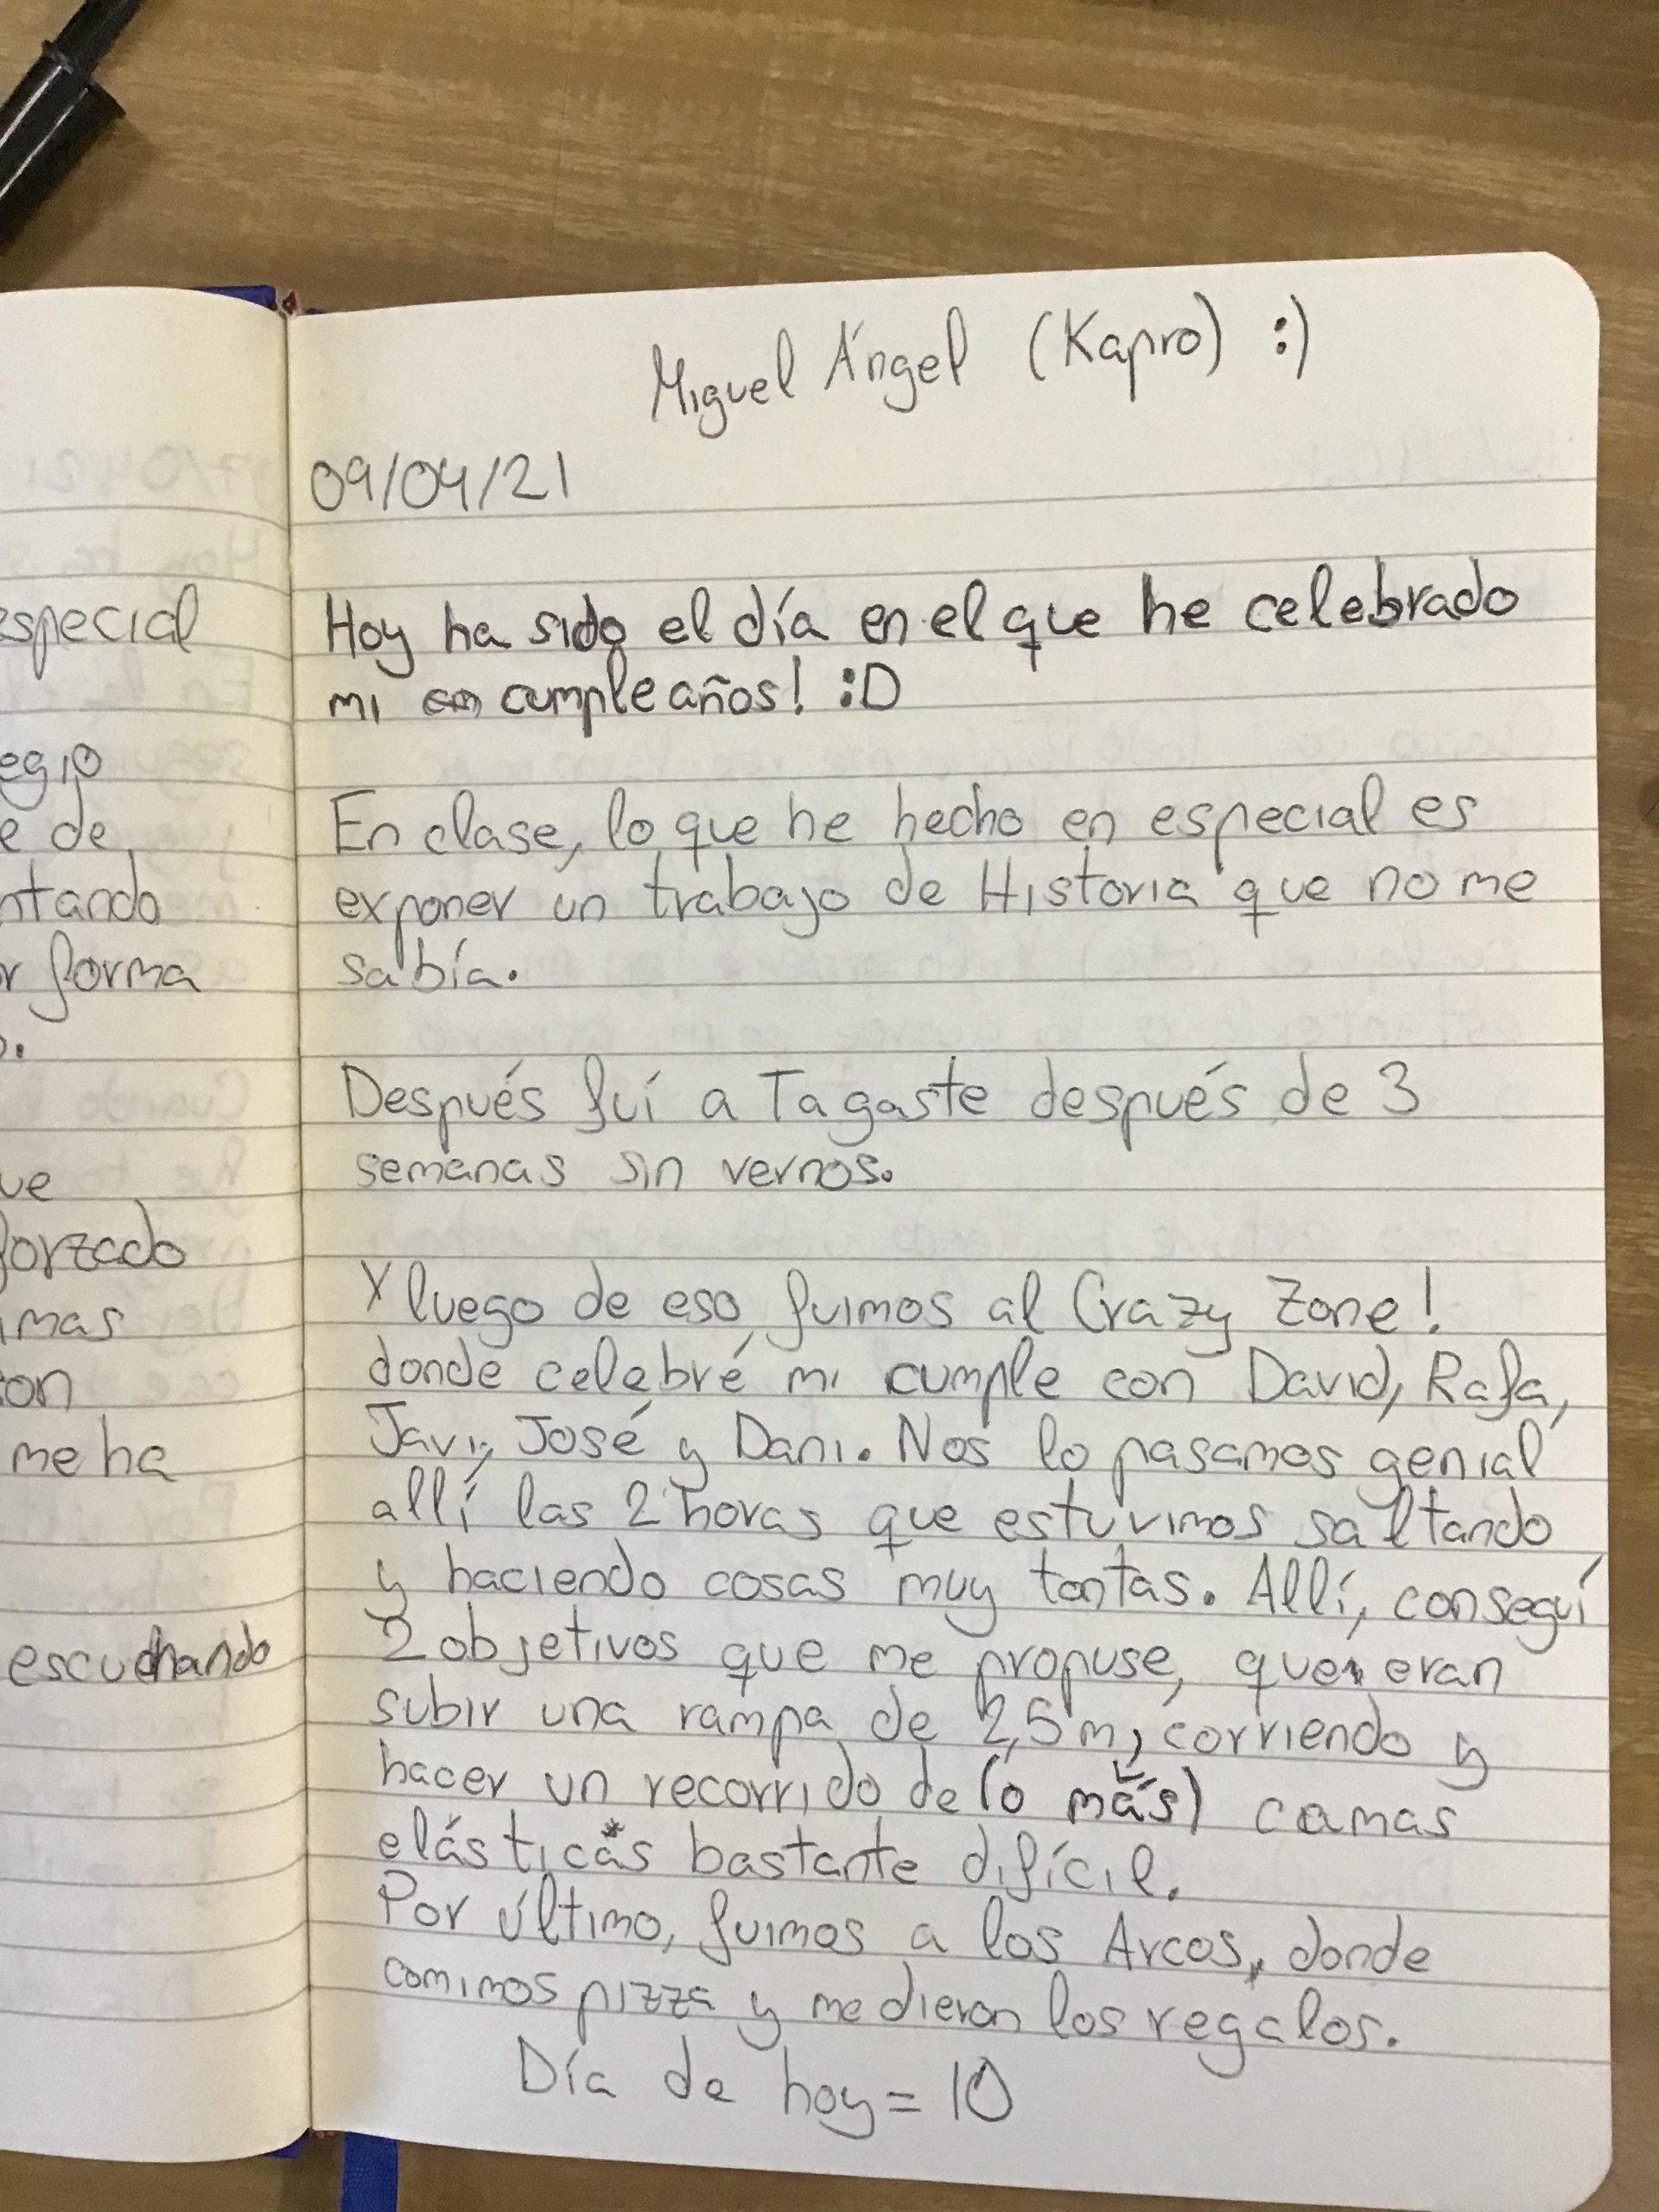 especial
egio
e de
ntando
r forma
o.
ue
forzado
imas
con
me ha
escuchando
Miguel Ángel (Kapro) :)
09/04/21
Hoy ha sido el día en el que he celebrado
mi cumpleaños! :D
En clase, lo que he hecho en especial es
exponer un trabajo de Historia que no me
sabía.
Después fuí a Tagaste después de 3
semanas sin vernos.
Y luego de eso, fuimos al Crazy Zone!
donde celebré mi cumple con David, Rafa,
Javi, José y Dani. Nos lo pasamos genial
allí las 2 horas que estuvimos saltando
y haciendo cosas muy tontas. Allí, conseguí
2 objetivos que me propuse, que eran
subir una rampa de 2,5m, corriendo y
hacer un recorrido de (o más) camas
elásticas bastante difícil.
Por último, fuimos a los Arcos, donde
comimos pizza y me dieron los regalos.
Día de hoy = 10